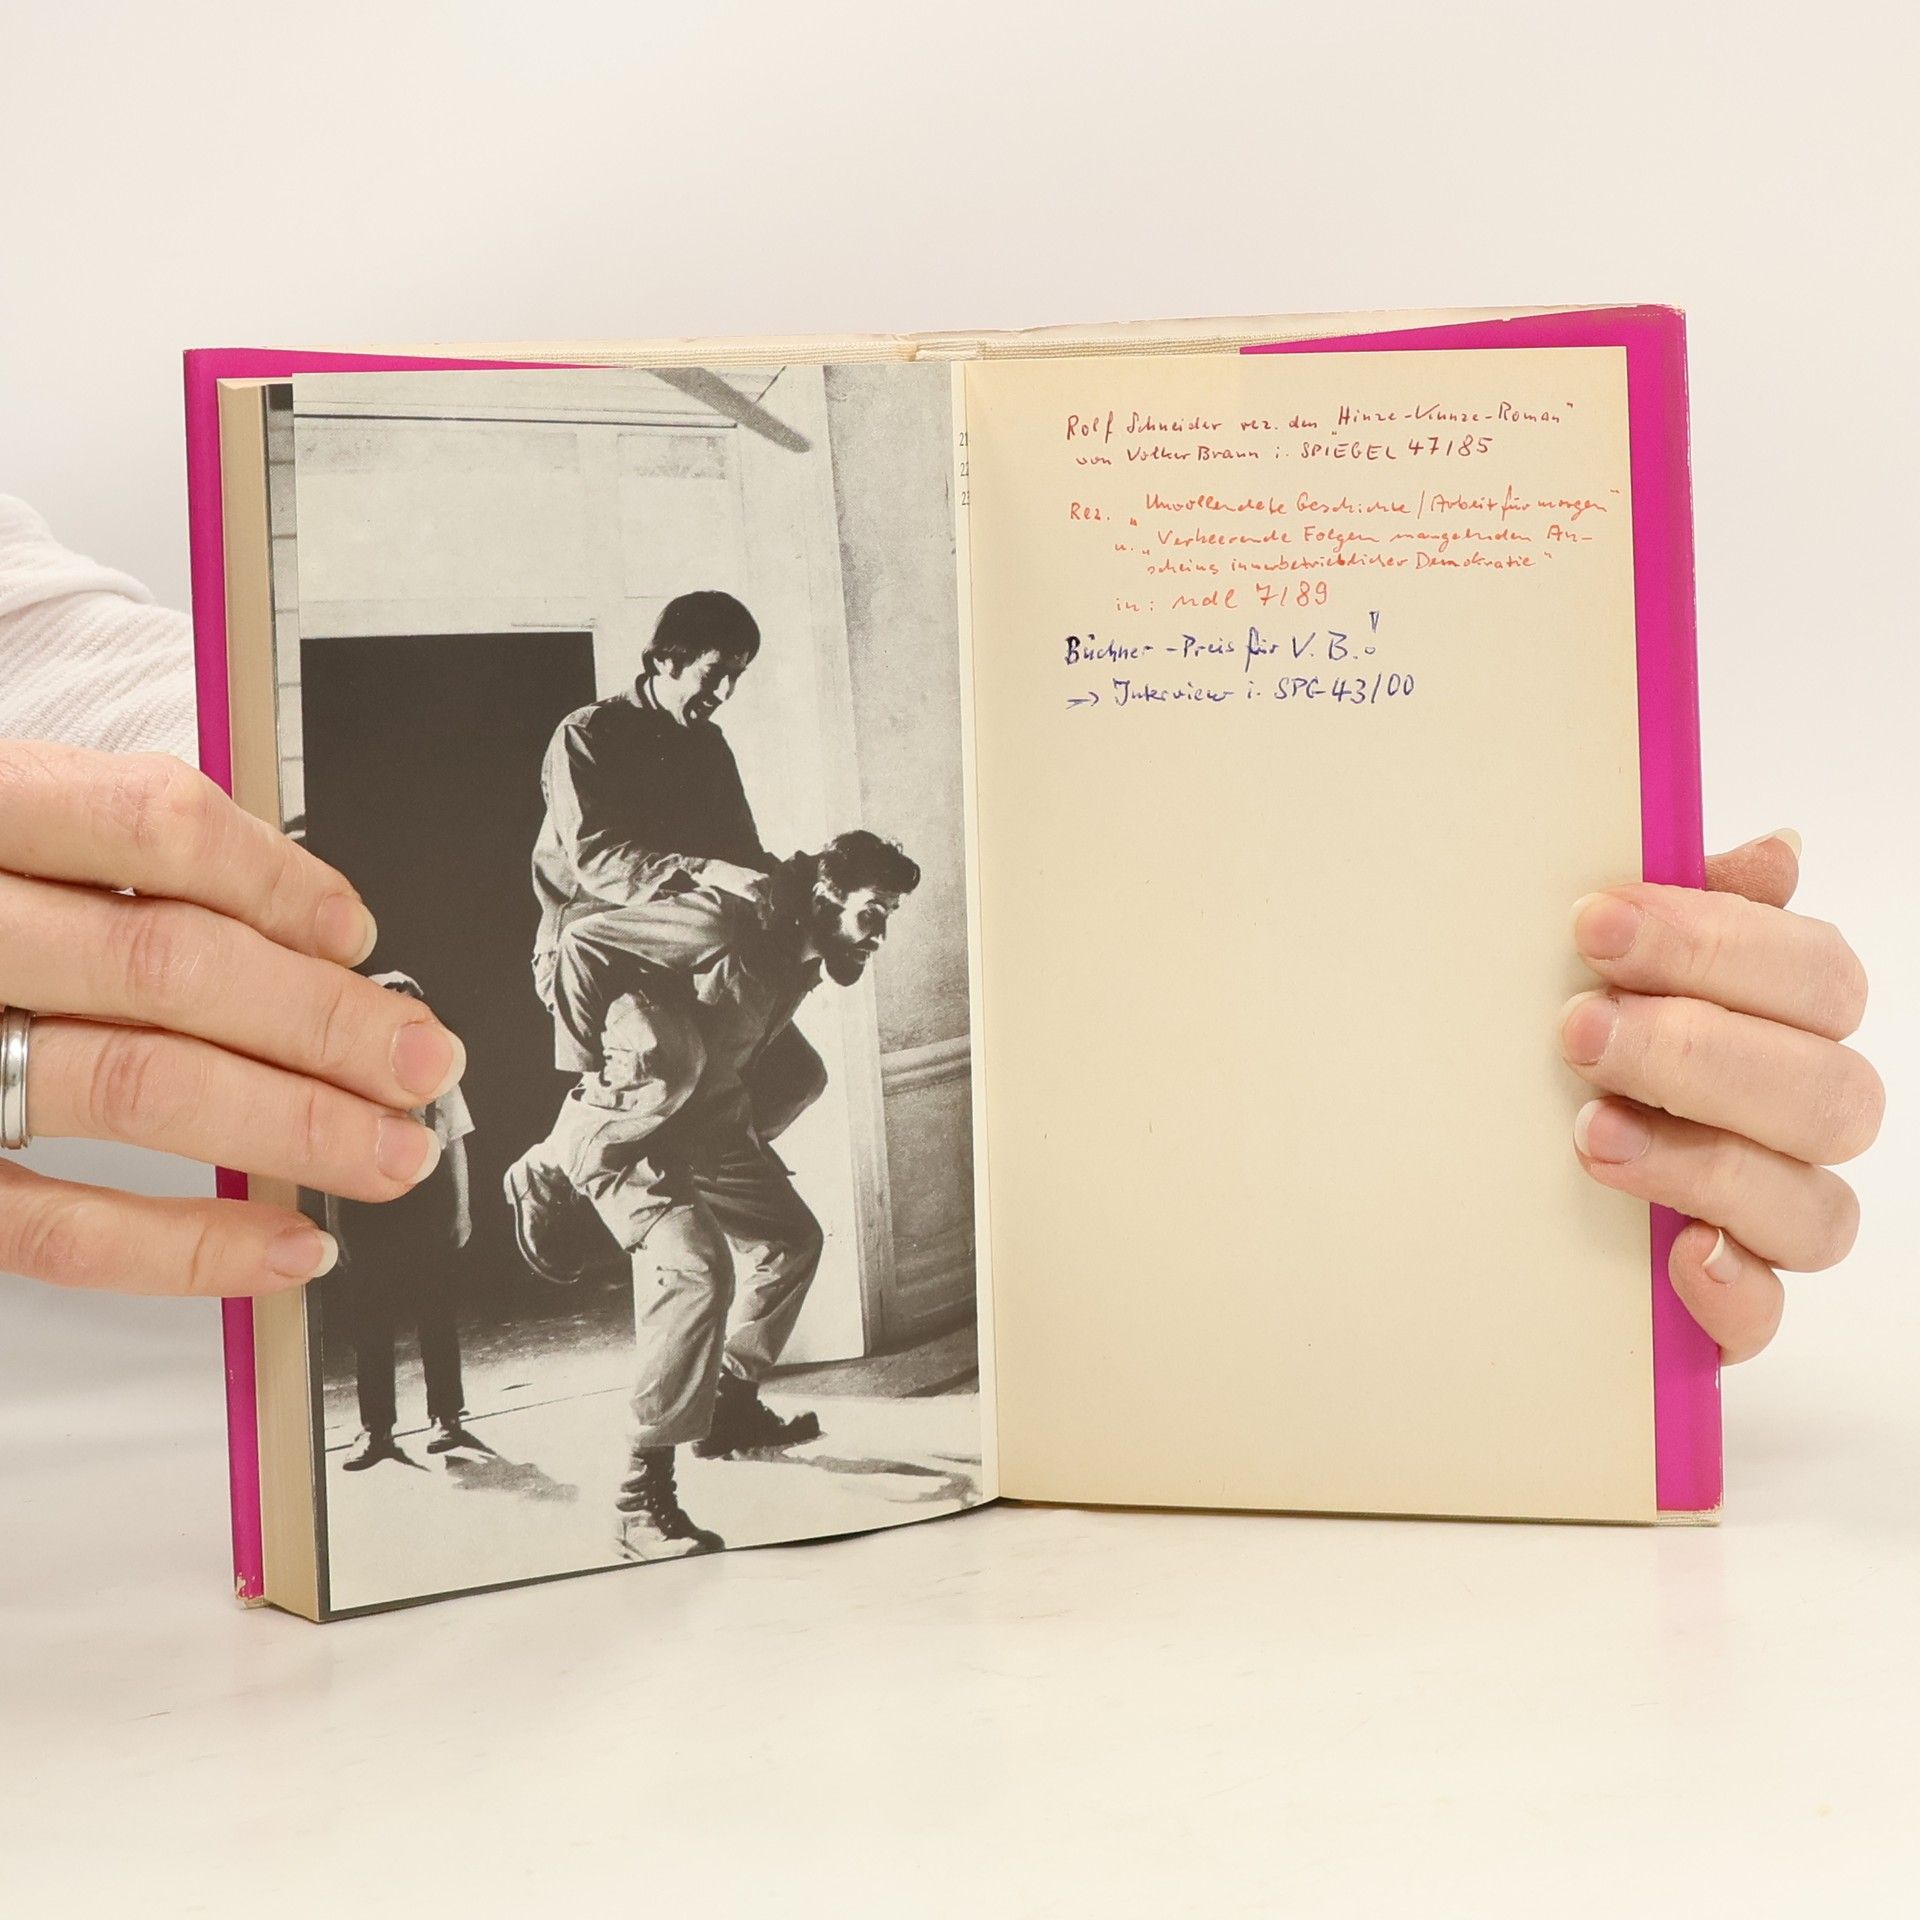 21
22
23
Rolf Schneider rez. den „Hinze-Kunze-Roman"
von Volker Braun i. SPIEGEL 47/85
Rez. „Unvollendete Geschichte / Arbeit für morgen"
u. „Verheerende Folgen mangelnden An-
scheins innerbetrieblicher Demokratie"
in: ndl 7/89
Büchner-Preis für V. B.!
→ Interview i. SPG 43/00